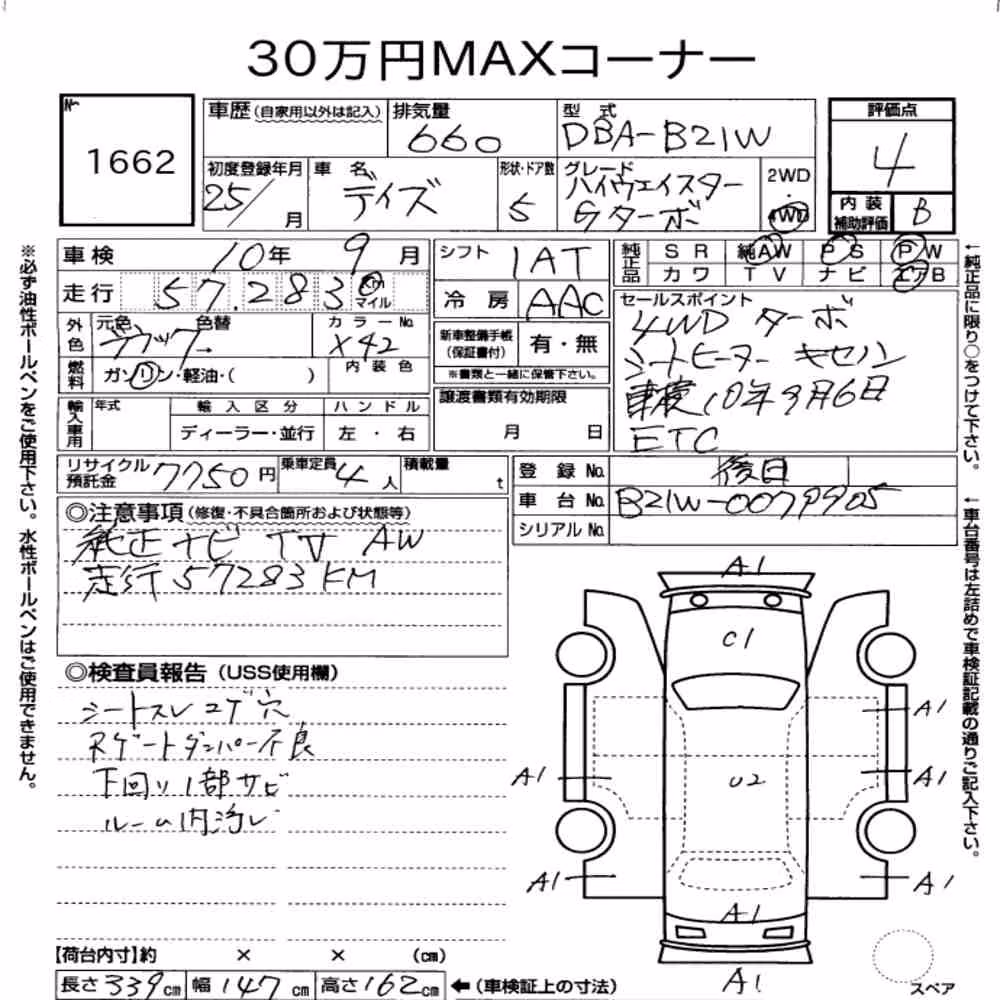 30万円MAXコーナー
№
1662
車歴(自家用以外は記入)
排気量
660
型式
DBA-B21W
評価点
4
内装
補助評価
B
初度登録年月
25/ 月
車名
デイズ
形状・ドア数
5
グレード
ハイウェイスター
Gターボ
2WD
・
4WD
車検 10年 9月
走行 57.283 Km マイル
外色
元色
色替
カラーNo.
X42
燃料
ガソリン・軽油・( )
内装色
輸入車用
年式
輸入区分
ハンドル
ディーラー・並行
左・右
シフト
IAT
冷房
AAC
新車整備手帳
(保証書付)
有・無
※書類と一緒に保管下さい。
譲渡書類有効期限
月 日
純正品
SR 純AW PS PW
カワ TV ナビ エアB
セールスポイント
4WD ターボ
シートヒーター キセノン
車検10年9月6日
ETC
リサイクル預託金
7750円
乗車定員
4人
積載量
t
登録No. 後日
車台No. B21W-0079905
シリアルNo.
◎注意事項(修復・不具合箇所および状態等)
純正ナビ TV AW
走行57283KM
◎検査員報告(USS使用欄)
シートスレコゲ穴
Rゲートダンパー不良
下回り1部サビ
ルーム内汚レ
A1
C1
U2
A1
A1
A1
A1
A1
A1
A1
スペア
【荷台内寸】約 × × (cm)
長さ339cm 幅147cm 高さ162cm
←(車検証上の寸法)
※必ず油性ボールペンをご使用下さい。水性ボールペンはご使用できません。
←純正品に限り○をつけて下さい。
←車台番号は左詰めで車検証記載の通りご記入下さい。